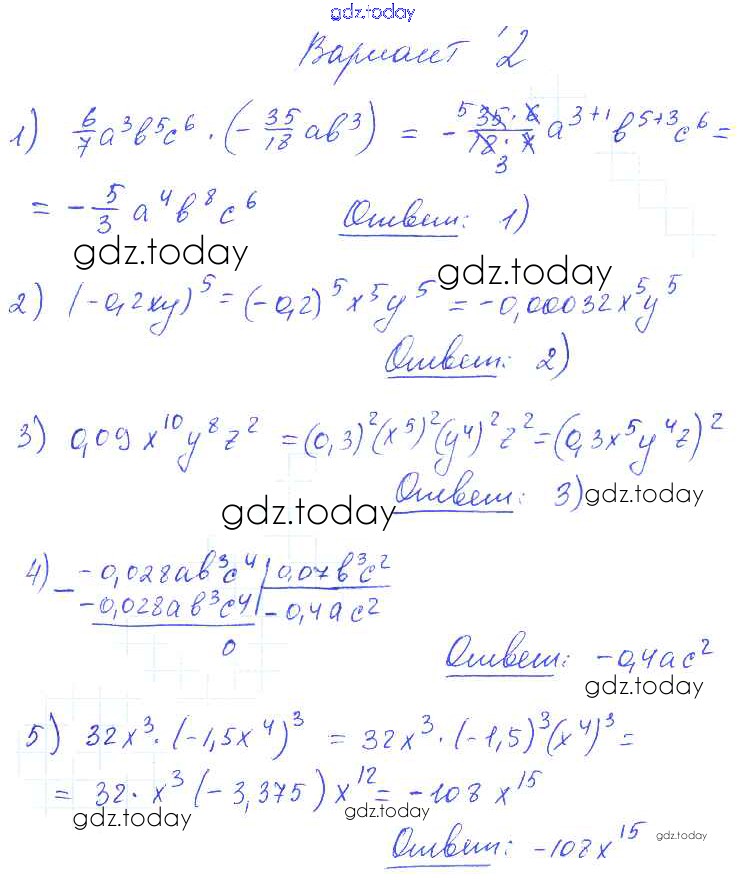 gdz.today
Вариант 2
1) 6/7 a³b⁵c⁶ · (- 35/18 ab³) = - 5 35 · 6 / 18 · 7 3 a³⁺¹b⁵⁺³c⁶ =
= - 5/3 a⁴b⁸c⁶ Ответ: 1)
gdz.today gdz.today
2) (-0,2xy)⁵ = (-0,2)⁵x⁵y⁵ = -0,00032x⁵y⁵
Ответ: 2)
3) 0,09x¹⁰y⁸z² = (0,3)²(x⁵)²(y⁴)²z² = (0,3x⁵y⁴z)²
Ответ: 3) gdz.today
gdz.today
4) - -0,028ab³c⁴ | 0,07b³c²
-0,028ab³c⁴ | -0,4ac²
0
Ответ: -0,4ac²
gdz.today
5) 32x³ · (-1,5x⁴)³ = 32x³ · (-1,5)³(x⁴)³ =
= 32 · x³(-3,375)x¹² = -108x¹⁵
gdz.today gdz.today
Ответ: -108x¹⁵ gdz.today